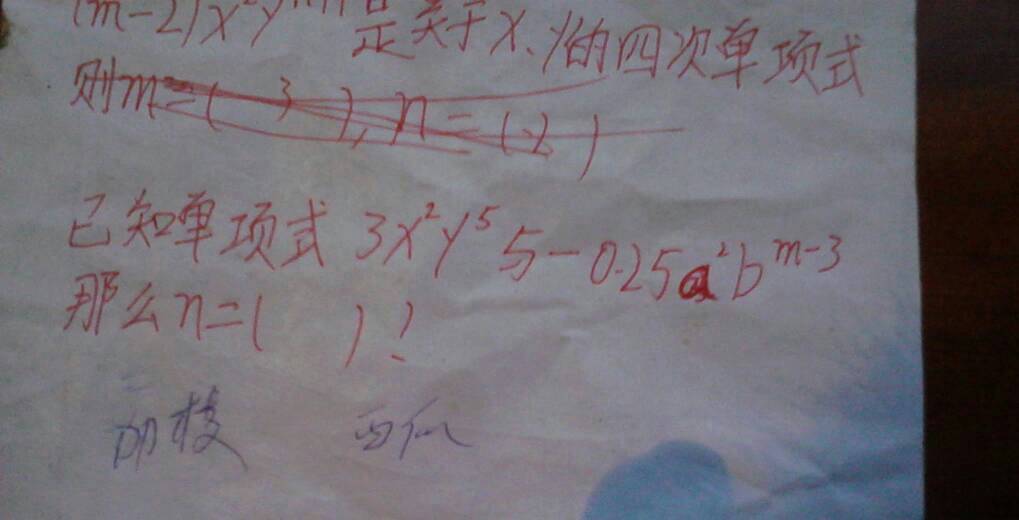 (m-2)x²y 是关于x、y的四次单项式
则m=( 3 ), n=(2)
已知单项式 3x²y⁵与-0.25a²b^{m-3}
那么n=( )!